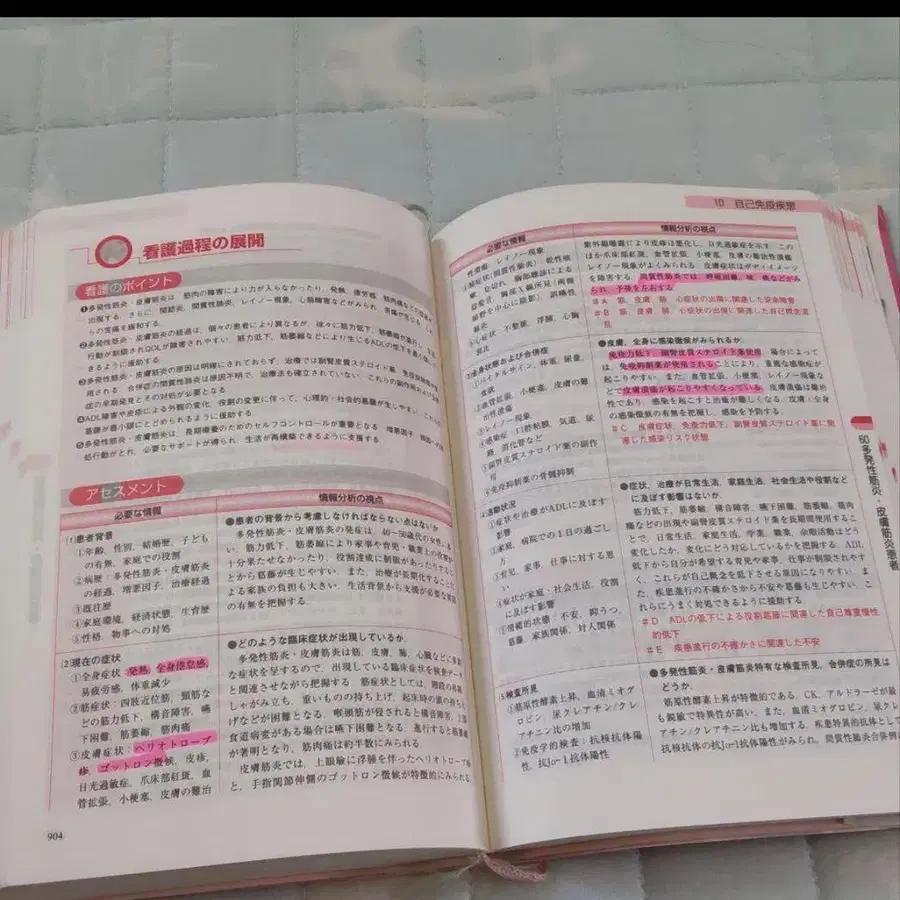 看護過程の展開
看護のポイント
❶多発性筋炎・皮膚筋炎は 筋肉の障害により力が入らなかったり、発熱 疲労感 筋肉痛などの
出現する. さらに 関節炎, 間質性肺炎, レイノー現象, 心筋障害などがみられ
らの支援を緩和する.
❷多発性筋炎・皮膚筋炎の経過は, 個々の患者により異なるが, 徐々に筋力低下, 筋萎縮が進行し
行動が制限されQOLが障害されやすい. 筋力低下, 筋萎縮などにより生じるADLの低下を最小限に
きるように援助する.
❸多発性筋炎・皮膚筋炎の原因は明確にされておらず, 治療では副腎皮質ステロイド薬
用される. 合併症の間質性肺炎は原因不明で, 治療法も確立されていない. これらの副作用
症の早期発見とその対処が必要となる
❹ADL障害や皮疹による外観の変化, 役割の変更に伴って, 心理的・社会的葛藤が生じやすい.
葛藤が最小限にとどめられるように援助する.
❺多発性筋炎・皮膚筋炎は, 長期療養のためのセルフコントロールが重要となる 増悪因子
処行動がとれ, 必要なサポートが得られ, 生活が再構築できるように支援する
アセスメント
必要な情報
情報分析の視点
(1)患者背景
①年齢, 性別, 結婚歴, 子ども
の有無, 家庭での役割
②病歴:多発性筋炎・皮膚筋炎
の経過, 増悪因子, 治療経過
③既往歴
④家庭環境, 経済状態, 生育歴
⑤性格, 物事への対処
●患者の背景から考慮しなければならない点はないか
多発性筋炎・皮膚筋炎の発症は, 40〜50歳代の女性に多
い. 筋力低下, 筋萎縮により家事や育児・職業上の役割が
十分果たせなかったり, 役割達成に制限があったりするこ
とから葛藤が生じやすい. また, 治療が長期化することに
よる家族の負担も大きい. 生活背景から支援が必要な
の有無を把握する.
(2)現在の症状
①全身症状:発熱, 全身倦怠感,
易疲労感, 体重減少
②筋症状:四肢近位筋, 頸筋な
どの筋力低下, 構音障害, 嚥
下困難, 筋萎縮, 筋肉痛
③皮膚症状:ヘリオトロープ
疹, ゴットロン徴候, 皮疹,
日光過敏症, 爪床部紅斑, 血
管拡張, 小梗塞, 皮膚の難治
●どのような臨床症状が出現しているか.
多発性筋炎・皮膚筋炎は筋, 皮膚, 肺, 心臓などに多彩
な症状を呈するので, 出現している臨床症状を検査データ
と関連させながら把握する. 筋症状としては, 階段の昇降,
しゃがみ立ち, 重いものの持ち上げ, 起床時の頭の持ち上
げなどが困難となる. 喉頭筋が侵されると構音障害, 上部
食道病変がある場合は嚥下困難となる. 進行すると筋萎縮
が著明となり, 筋肉痛は約半数にみられる.
皮膚筋炎では, 上眼瞼に浮腫を伴ったヘリオトロープ疹
と, 手指関節伸側のゴットロン徴候が特徴的にみられる
904
10 自己免疫疾患
必要な情報
情報分析の視点
性潰瘍, レイノー現象
④肺症状(間質性肺炎):乾性咳
嗽, 息切れ, 胸部聴診による
捻髪音, 胸部X線所見(両肺
野を中心に陰影), 誤嚥性
肺炎
⑤心症状:不整脈, 浮腫, 心胸
郭比
紫外線曝露により皮疹は悪化し, 日光過敏症を示す この
ほか爪床部紅斑, 血管拡張, 小梗塞, 皮膚の難治性潰瘍
レイノー現象がよくみられる. 皮膚症状はボディイメージ
を障害する. 間質性肺炎では, 呼吸困難, 咳, 痰などがみ
られ, 予後を左右する
#A 筋, 皮膚, 肺, 心症状の出現に関連した安楽障害
#B 筋, 皮膚, 肺, 心症状の出現に関連した自己概念混
乱
(3)全身状態および合併症
①バイタルサイン, 体重, 尿量,
食欲
②血管拡張, 小梗塞, 皮膚の難
治性潰瘍
③レイノー現象
④感染症:口腔粘膜, 気道, 尿
路, 消化管など
⑤副腎皮質ステロイド薬の副作
用
⑥免疫抑制薬の骨髄抑制
●皮膚, 全身に感染徴候がみられるか.
免疫力低下, 副腎皮質ステロイド薬使用, 場合によって
は, 免疫抑制薬が使用されることにより, 重篤な感染症が
起こりやすい. また, 血管拡張, 小梗塞, レイノー現象な
どで皮膚潰瘍が起こりやすくなっている. 皮膚潰瘍は難治
性であり, 感染を起こすと治癒が難しくなる. 皮膚・全身
の感染徴候の有無を把握し, 感染を予防する.
#C 皮膚症状, 免疫力低下, 副腎皮質ステロイド薬に関
連した感染リスク状態
(4)活動状況
①症状や治療がADLに及ぼす
影響
②家庭, 病院での1日の過ごし
方
③育児, 家事, 仕事に対する思
い
④症状が家庭・社会生活, 役割
に及ぼす影響
⑤情緒的状態:不安, 抑うつ,
葛藤, 家族関係, 対人関係
●症状, 治療が日常生活, 家庭生活, 社会生活や役割など
に及ぼす影響はないか.
筋力低下, 筋萎縮, 構音障害, 嚥下困難, 筋萎縮, 筋肉
痛などの出現や副腎皮質ステロイド薬を長期間使用するこ
とで, 日常生活, 家庭生活, 学業, 職業, 余暇活動はどう
変化したか, 変化にどう対応しているかを把握する. ADL
低下から自分が希望する育児や家事, 仕事が制限されやす
く, これらが自己概念を低下させる原因になりやすい. ま
た, 疾患進行の不確かさから不安や葛藤も生じやすい. こ
れらにうまく対処できるように援助する.
#D ADLの低下による役割葛藤に関連した自己尊重慢性
的低下
#E 疾患進行の不確かさに関連した不安
(5)検査所見
①筋原性酵素上昇, 血清ミオグ
ロビン, 尿クレアチン/クレ
アチニン比の増加
②免疫学的検査:抗核抗体陽
性, 抗Jo-1抗体陽性
●多発性筋炎・皮膚筋炎特有な検査所見, 合併症の所見は
どうか.
筋原性酵素上昇が特徴的である. CK, アルドラーゼが最
も鋭敏で特異性が高い. また, 血清ミオグロビン, 尿クレ
アチン/クレアチニン比も増加する. 疾患特異的抗体として
抗核抗体の抗Jo-1抗体陽性がみられ, 間質性肺炎合併例は
60多発性筋炎・皮膚筋炎患者